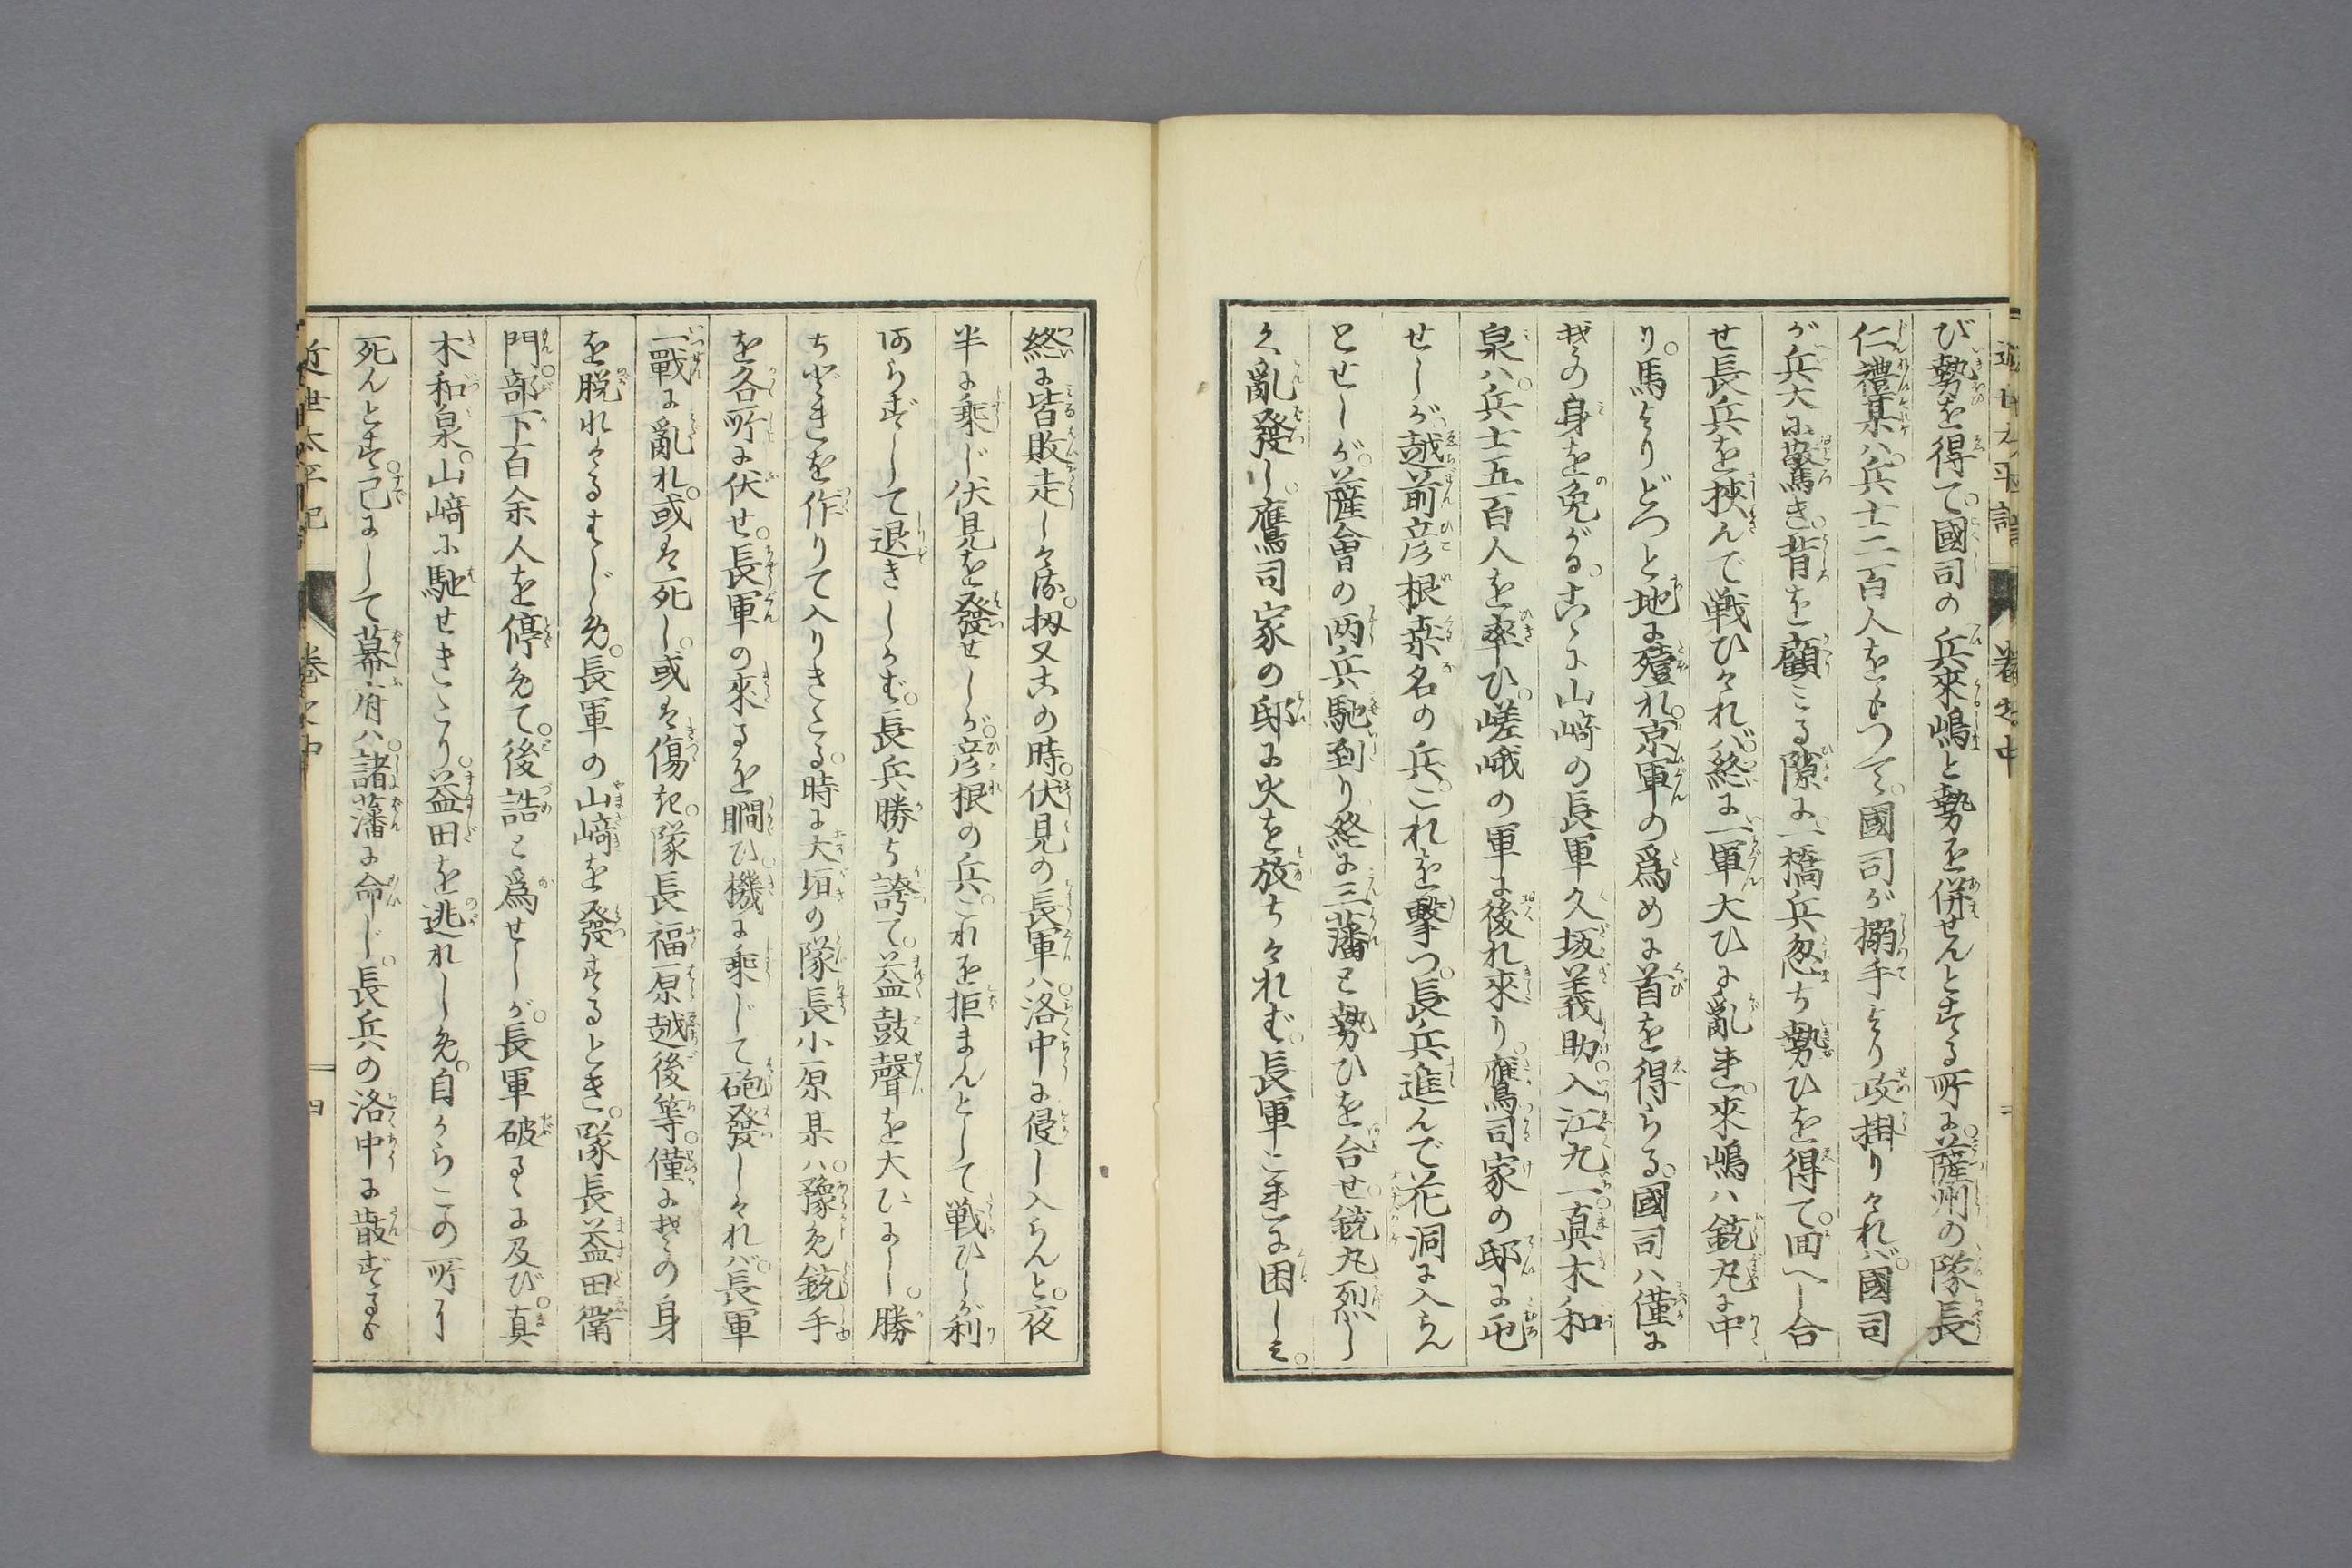 び勢を得て。國司の兵來嶋と勢を併せんとする所に。薩州の隊長
仁禮某ハ。兵士二百人をもつて。國司が搦手より攻掛りけれバ。國司
が兵大に驚き。背を顧こる隙に。一橋兵忽ち勢ひを得て。囬へし合
せ長兵を挾んで戦ひけれバ。終に一軍大ひに亂れ。來嶋ハ銃丸に中
り。馬よりどつと地に殪れ。京軍の爲めに首を得らる。國司ハ僅に
其の身を免がる。こゝに山﨑の長軍久坂義助。入江九一。真木和
泉ハ。兵士五百人を率ひ。嵯峨の軍に後れ來り。鷹司家の邸に屯
せしが。越前彦根桒名の兵。これを擊つ。長兵進んで花洞に入らん
とせしが。薩會の兩兵馳到り終に三藩と勢ひを合せ。銃丸烈し
く亂發し。鷹司家の邸に火を放ちければ。長軍これに困しミ。
終に皆敗走しける。扨又この時。伏見の長軍ハ。洛中に侵し入らんと。夜
半に乘じ伏見を發せしが。彦根の兵。これを拒まんとして戦ひしが利
あらずして退きしかば。長兵勝ち誇て。益鼓聲を大ひにし。勝
ちどきを作りて入りきたる。時に大垣の隊長小原某ハ。豫め銃手
を各所に伏せ。長軍の來るを瞷ひ。機に乘じて砲發しけれバ。長軍
一戰に亂れ。或は死し。或は傷き。隊長福原越後等。僅に其の身
を脱れける。はじめ。長軍の山﨑を發するとき。隊長益田衛
門。部下百余人を停めて。後詰と爲せしが。長軍破るゝに及び。真
木和泉。山﨑に馳せきたり。益田を逃れしめ。自からこの所に
死んとす。已にして幕府ハ。諸藩に命じ。長兵の洛中に散ずるを
近世太平記
卷之中
四